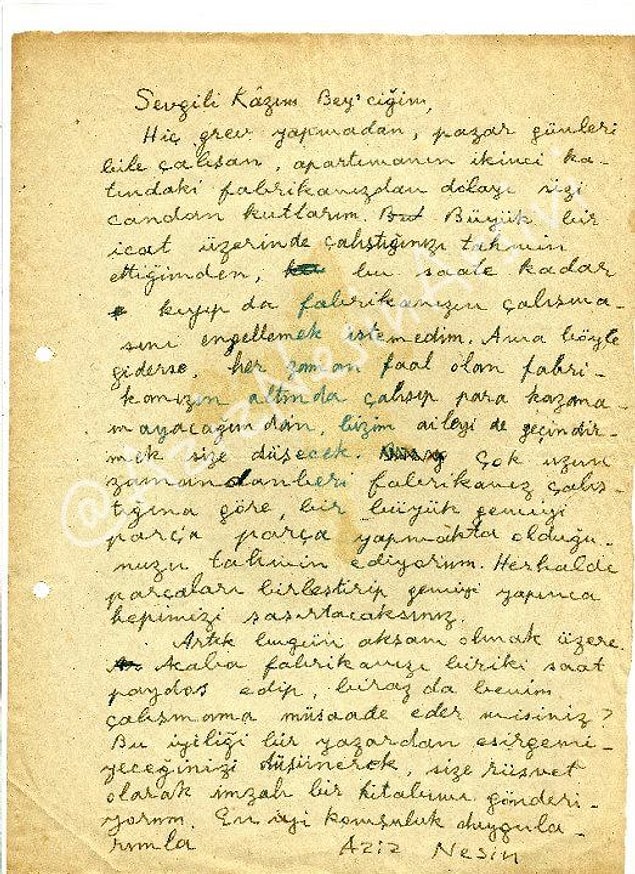 Sevgili Kâzım Bey'ciğim,
Hiç grev yapmadan, pazar günleri
bile çalışan, apartımanın ikinci ka-
tındaki fabrikanızdan dolayı sizi
candan kutlarım. Büyük bir
icat üzerinde çalıştığınızı tahmin
ettiğimden, bu saate kadar
kıyıp da fabrikanızın çalışma-
sını engellemek istemedim. Ama böyle
giderse, her zaman faal olan fabri-
kanızın altında çalışıp para kazana-
mayacağımdan, bizim aileyi de geçindir-
mek size düşecek. Çok uzun
zamandanberi fabrikanız çalış-
tığına göre, bir büyük gemiyi
parça parça yapmakta olduğu-
nuzu tahmin ediyorum. Herhalde
parçaları birleştirip gemiyi yapınca
hepimizi şaşırtacaksınız.
Artık bugün akşam olmak üzere.
Acaba fabrikanızı biriki saat
paydos edip, biraz da benim
çalışmama müsaade eder misiniz?
Bu iyiliği bir yazardan esirgemi-
yeceğinizi düşünerek, size rüşvet
olarak imzalı bir kitabımı gönderi-
yorum. En iyi komşuluk duygula-
rımla
Aziz Nesin
@AzizNesinArsivi